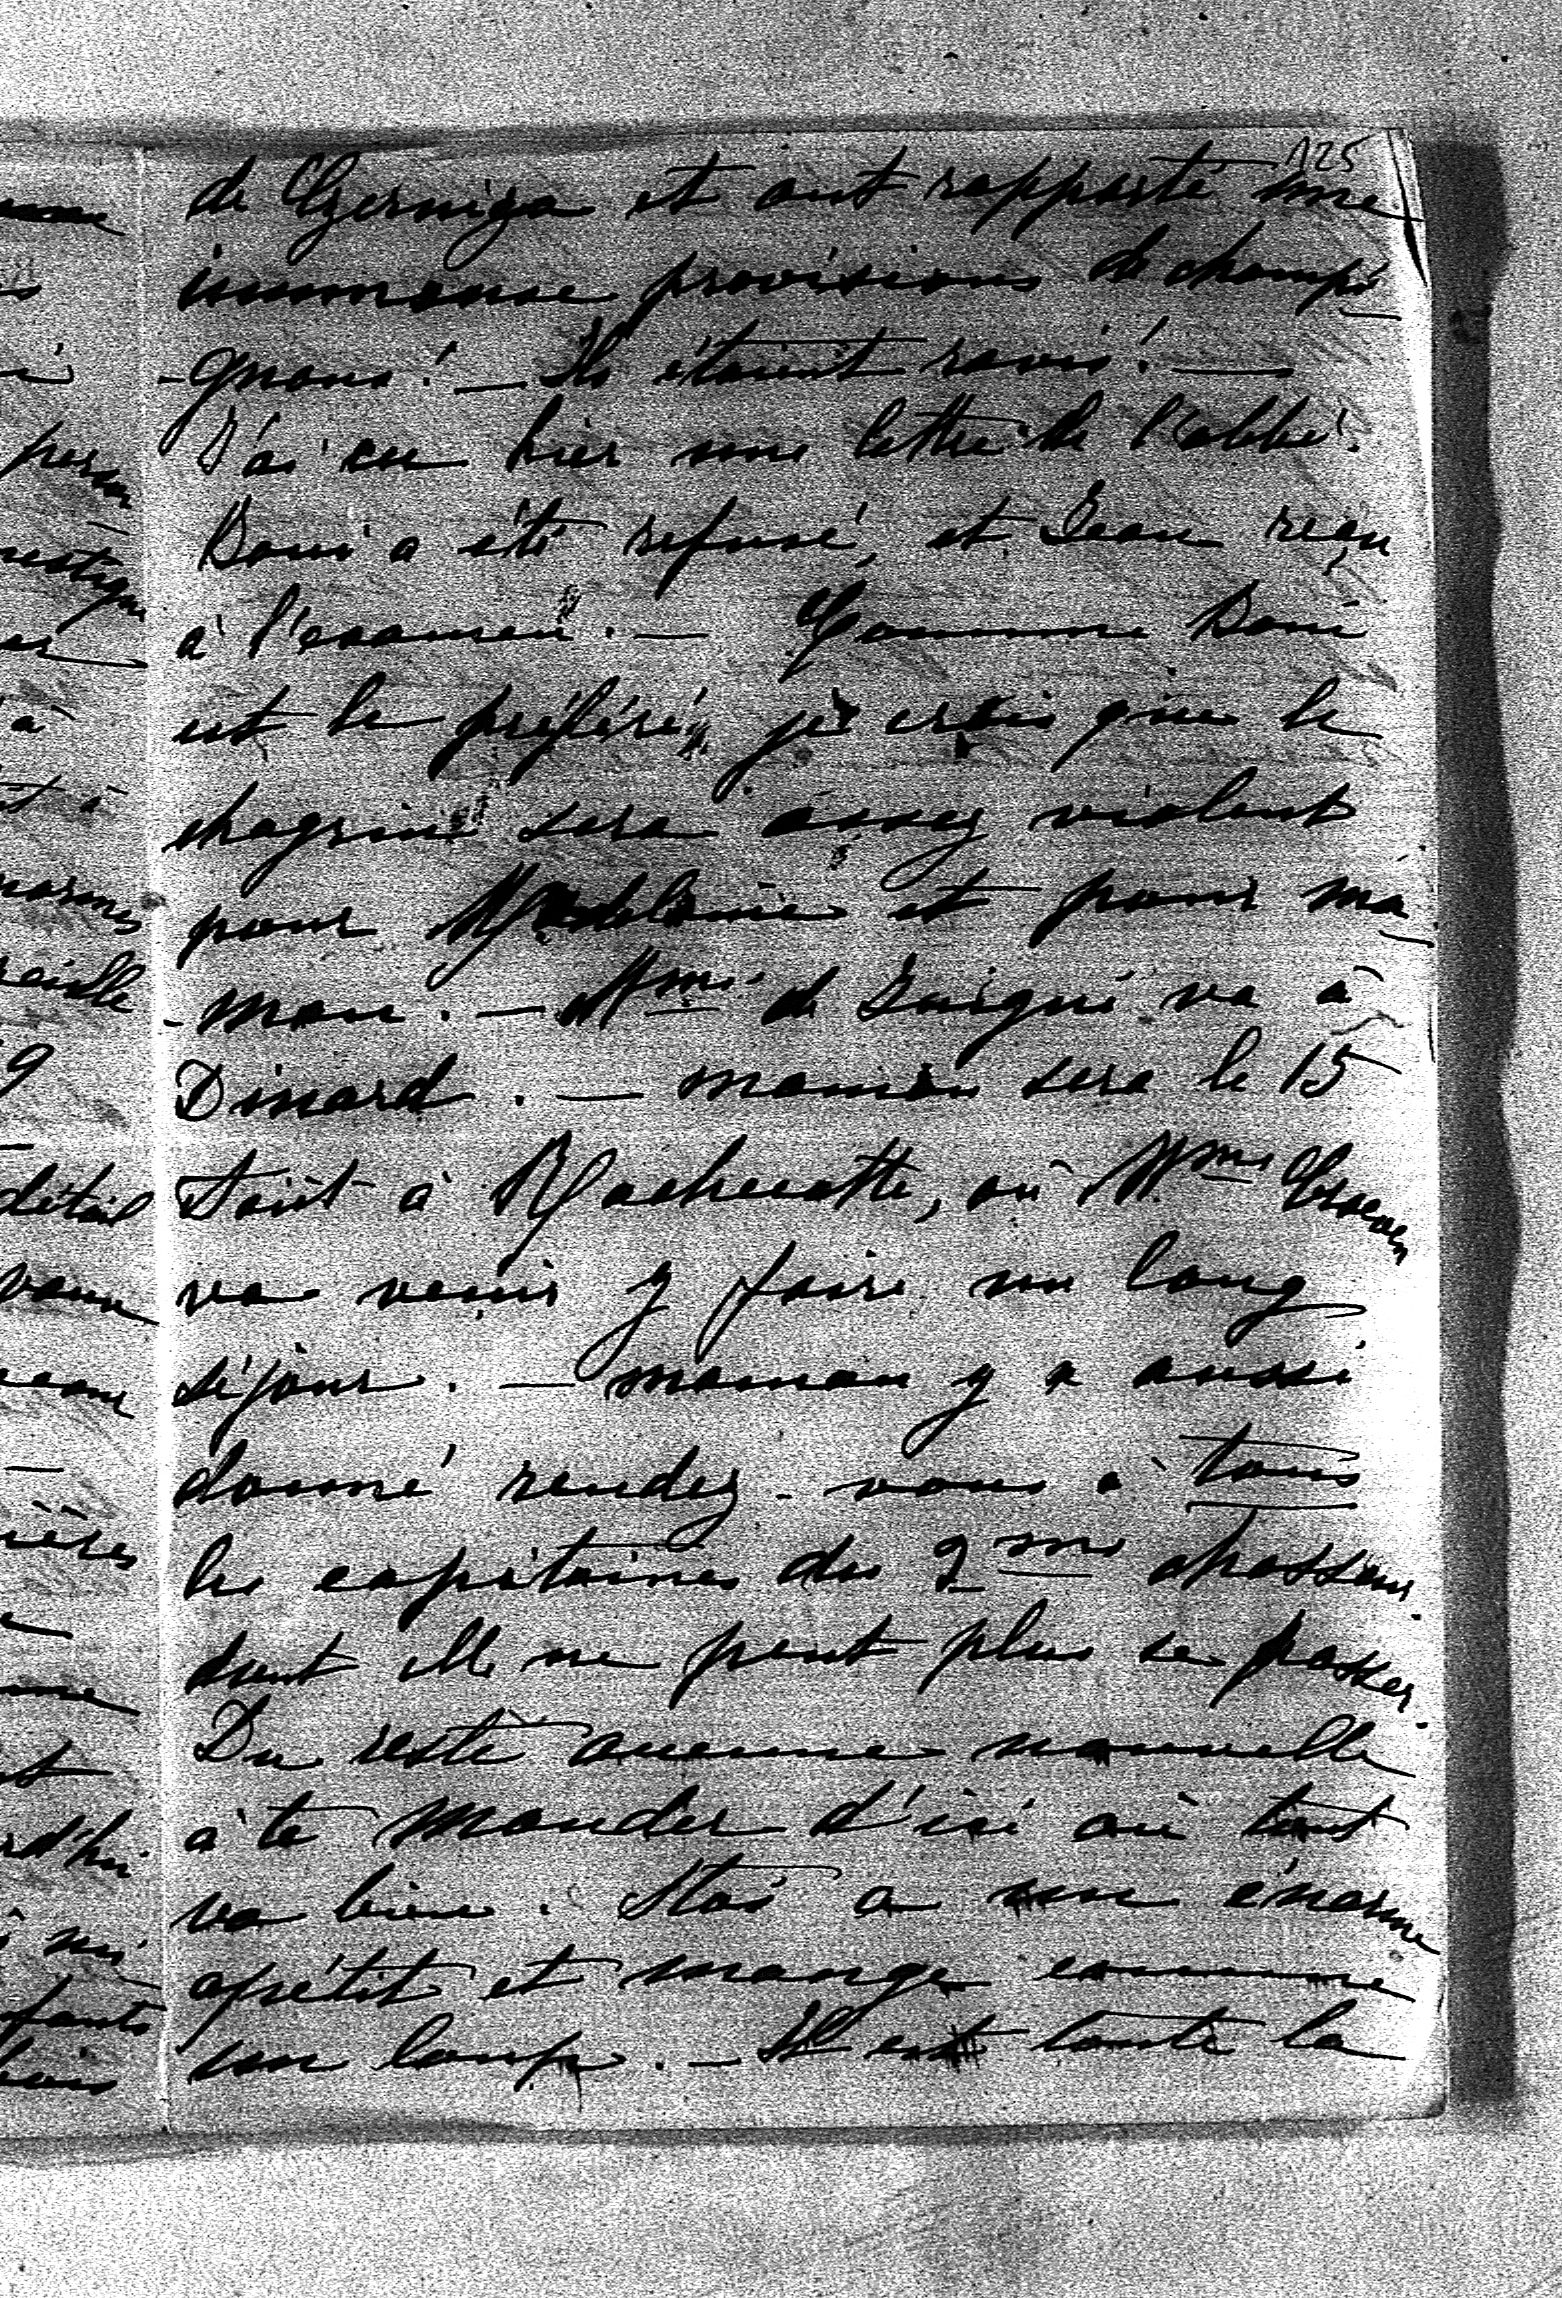 125
de Czerniga et ont rapporté une
immense provisions de champi
-gnons! — Ils étaient ravis! —
J'ai eu hier une lettre de l'abbé.
Boni a été refusé, et Jean reçu
à l'examen. — Comme Boni
est le préféré, je crois que le
chagrin sera assez violent
pour Madeleine et pour ma
-man. — Mme de Juigné va à
Dinard. — maman sera le 15
Août à Rochecotte, où Mme
va venir y faire un long
séjour. — maman y a aussi
donné rendez-vous à tous
les capitaines du 2me chasseurs
dont elle ne peut plus se passer.
Du reste aucune nouvelle
à te mander d'ici où tout
va bien. Stas a un énorme
apétit et mange comme
un loup. — Il est toute la